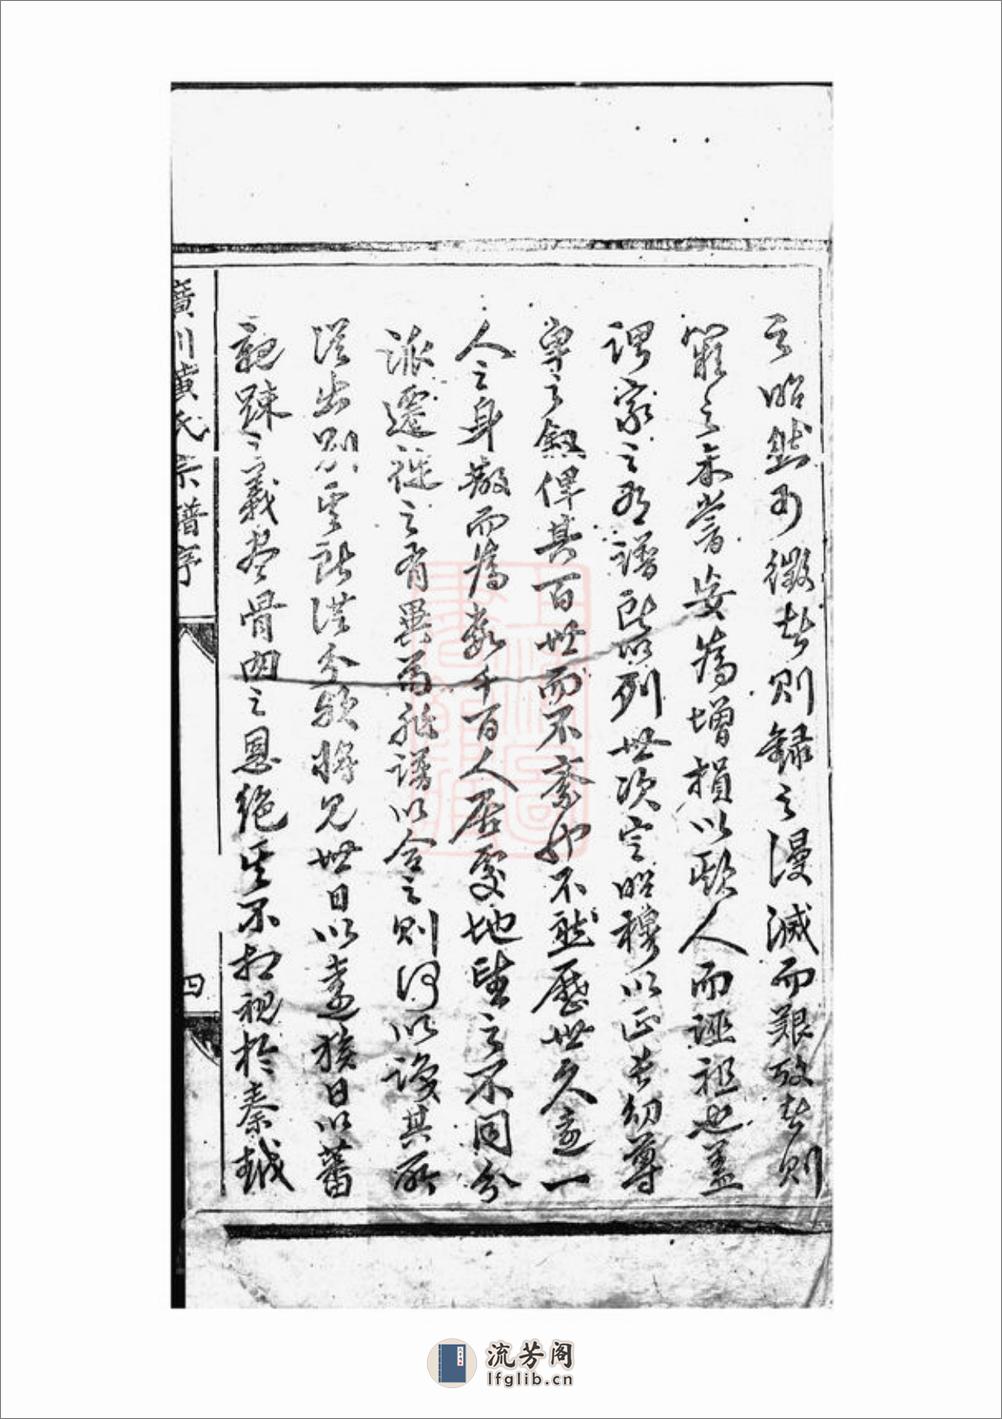 之昭然可徵者則錄之漫滅而艱考者則
闕之未嘗妄為增損以欺人而誣祖也蓋
謂家之有譜所以列世次定昭穆以正長幼尊
卑之敘俾其百世而不紊也不然歷世久遠一
人之身散而為數千百人居處地望之不同分
派遷徙之有異苟非譜以合之則何以識其所
從出別其所從分後將見世日以遠族日以蕃
親踈之義盡骨肉之恩絕其不相視於秦越
廣川黃氏宗譜序
四
流芳阁
lfglib.cn